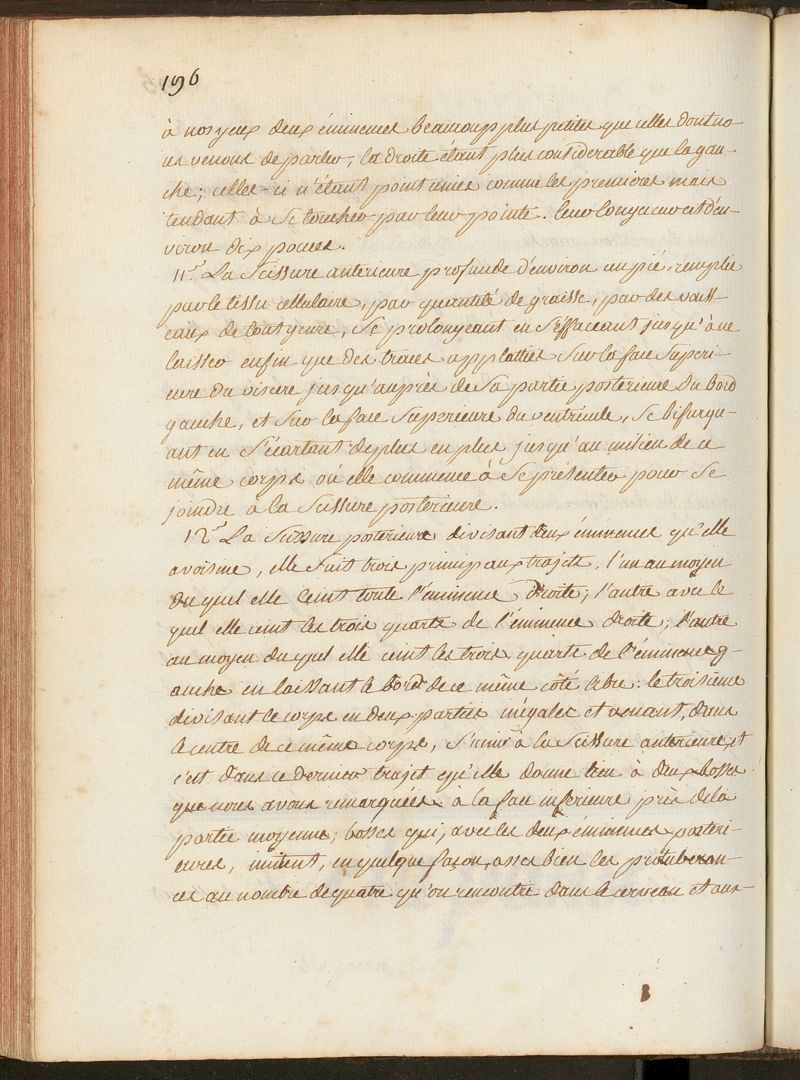 196
à nos yeux deux éminences beaucoup plus petites que celles dont no-
us venons de parler, la droite étant plus considerable que la gau-
che; celles-ci n'étant point unies comme les premieres mais
tendant à se toucher par leur pointe. leur longueur est d'en-
viron dix pouces.
11.° La Scissure anterieure profonde d'environ un pié, remplie
par le tissu cellulaire, par quantité de graisse, par des vaiss-
eaux de tout genre, se prolongeant en s'effaceant jusqu'à ne
laisser enfin que des traces applatties sur la face superi-
eure du viscere jusqu'auprès de sa partie posterieure du bord
gauche, et sur la face superieure du ventricule, se bifurqu-
ant en s'écartant de plus en plus jusqu'au milieu de ce
même corps où elle commence à se présenter pour se
joindre a la Scissure posterieure.
12.° La Scissure posterieure divisant deux éminences qu'elle
avoisine, elle suit trois principaux trajets, l'un au moyen
du quel elle ceint toute l'éminence droite; l'autre avec le
quel elle ceint les trois quarts de l'éminence droite; l'autre
au moyen du quel elle ceint les trois quarts de l'éminence g-
auche en laissant le bord de ce même côté libre: le troisième
divisant le corps en deux parties inégales et venant, dans
le centre de ce même corps, s'unir à la Scissure anterieure, et
c'est dans ce dernier trajet qu'elle donne lieu à deux bosses
que nous avons remarquées à la face inferieure près de la
partie moyenne; bosses qui, avec les deux éminences posteri-
eures, imitent, en quelque façon, assez bien les protuberan-
ces au nombre de quatre qu'on rencontre dans le cerveau et aux-